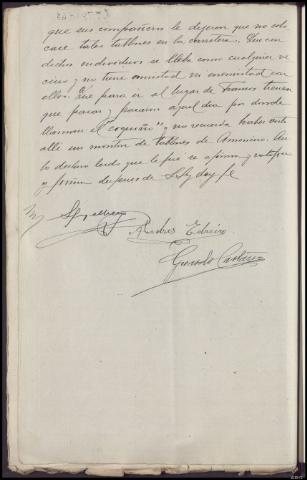 que sus compañeros le dejeron que no colo
case tales tablones en la carretera. Que con
dichos individuos se lleba como cualquier ve
cino y no tiene amistad ni enemistad con
ellos. Que para ir al lugar de tienen
que pasar y pasaron aquel dia por donde
llaman el y no recuerda haber visto
alli un monton de tablones de
lo declaro leido que le fue se afirma y ratifica
y firma despues de S.Sª doy fe
Andres
Gerardo